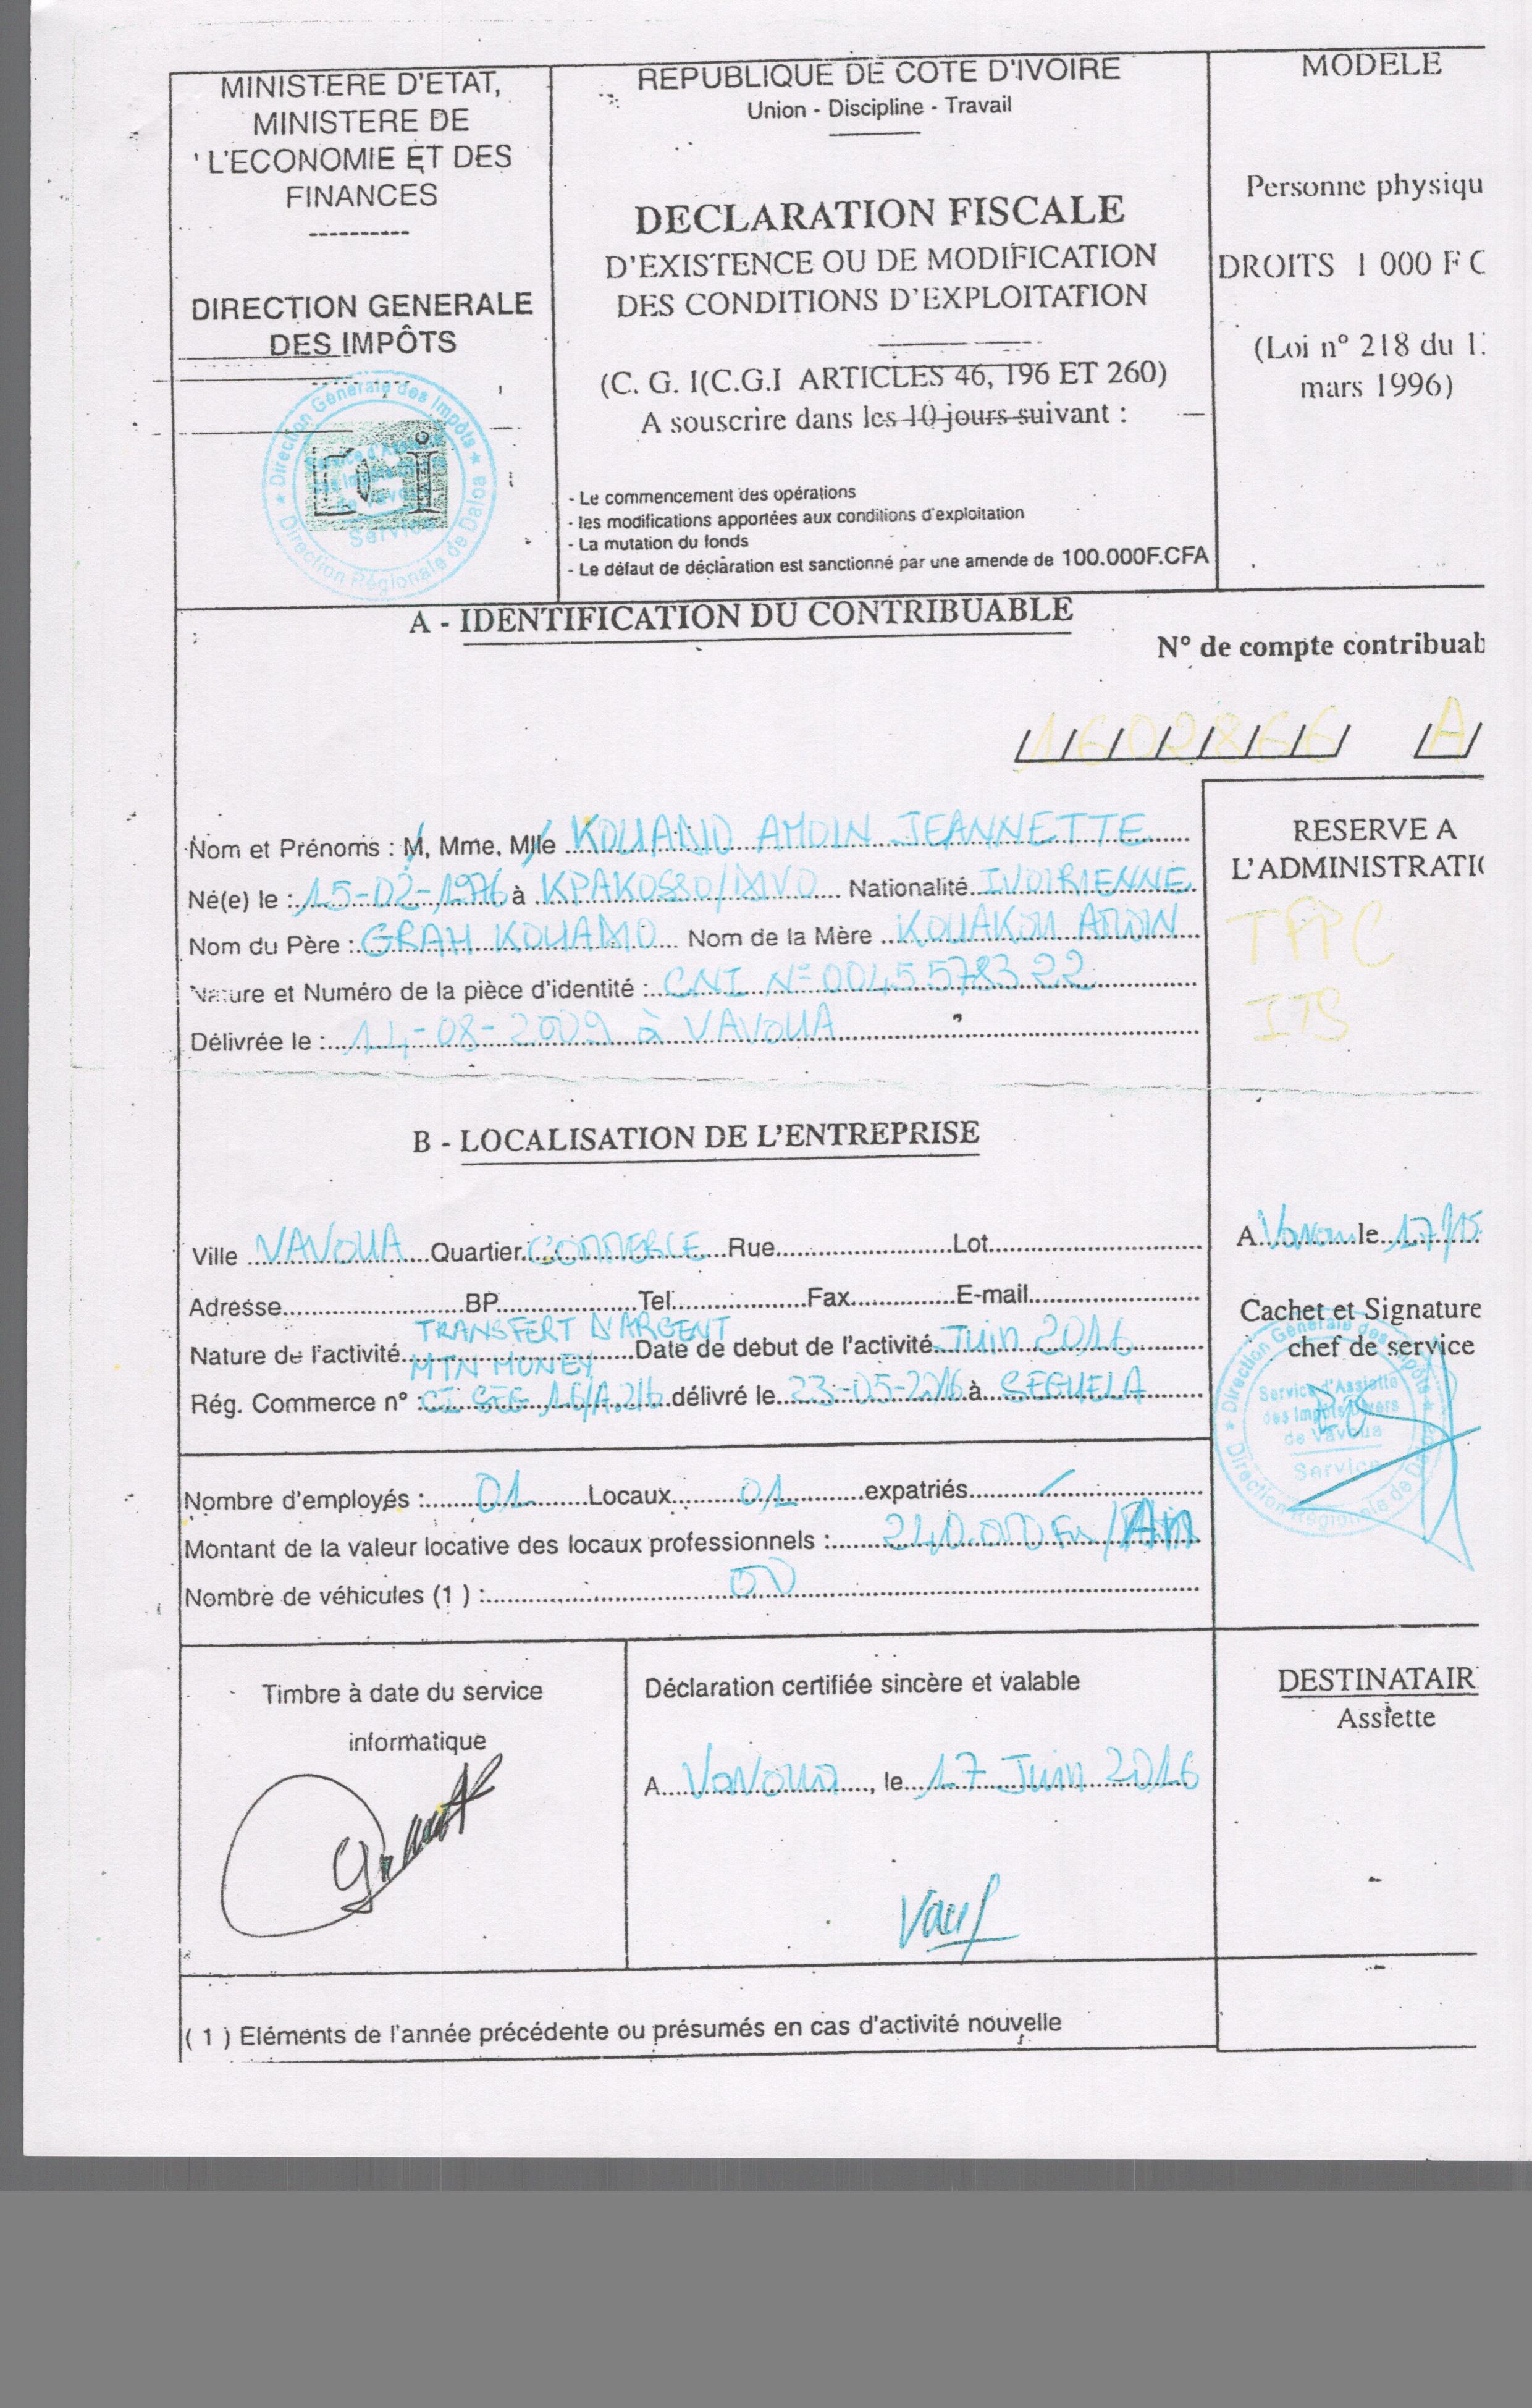 MINISTERE D'ETAT,
MINISTERE DE
L'ECONOMIE ET DES
FINANCES
----------
DIRECTION GENERALE
DES IMPÔTS
Direction Générale des Impôts
Service d'Assiette
Service
Direction Régionale de Daloa
REPUBLIQUE DE COTE D'IVOIRE
Union - Discipline - Travail
DECLARATION FISCALE
D'EXISTENCE OU DE MODIFICATION
DES CONDITIONS D'EXPLOITATION
(C. G. I(C.G.I ARTICLES 46, 196 ET 260)
A souscrire dans les 10 jours suivant :
- Le commencement des opérations
- les modifications apportées aux conditions d'exploitation
- La mutation du fonds
- Le défaut de déclaration est sanctionné par une amende de 100.000F.CFA
MODELE
Personne physiqu
DROITS 1 000 F C
(Loi n° 218 du 1
mars 1996)
A - IDENTIFICATION DU CONTRIBUABLE
N° de compte contribuab
1602866 A
Nom et Prénoms : M, Mme, Mlle KOUAHO AMOIN JEANNETTE
Né(e) le : 15-02-1976 à KPAKOSSO/ Nationalité IVOIRIENNE
Nom du Père : GRAH Nom de la Mère KOUAKOU AMOIN
Nature et Numéro de la pièce d'identité : CNI N° 0045578322
Délivrée le : 14-08-2009 à VAVOUA
RESERVE A
L'ADMINISTRATI
ITS
B - LOCALISATION DE L'ENTREPRISE
Ville VAVOUA Quartier COMMERCE Rue Lot
Adresse BP Tel Fax E-mail
TRANSFERT D'ARGENT
Nature de l'activité MTN MONEY Date de debut de l'activité Juin 2016
Rég. Commerce n° : CI SEG 16/A.216 délivré le 23-05-2016 à SEGUELA
A Vavoua le 17/
Cachet et Signature
chef de service
Direction Générale des Impôts
Service d'Assiette
des Impôts Divers
de Vavoua
Service
Direction Régionale de D
Nombre d'employés : 01 Locaux 01 expatriés /
Montant de la valeur locative des locaux professionnels : 240.000 Frs/An
Nombre de véhicules (1 ) : 00
Timbre à date du service
informatique
Déclaration certifiée sincère et valable
A Vavoua, le 17 Juin 2016
DESTINATAIR
Assiette
( 1 ) Eléments de l'année précédente ou présumés en cas d'activité nouvelle